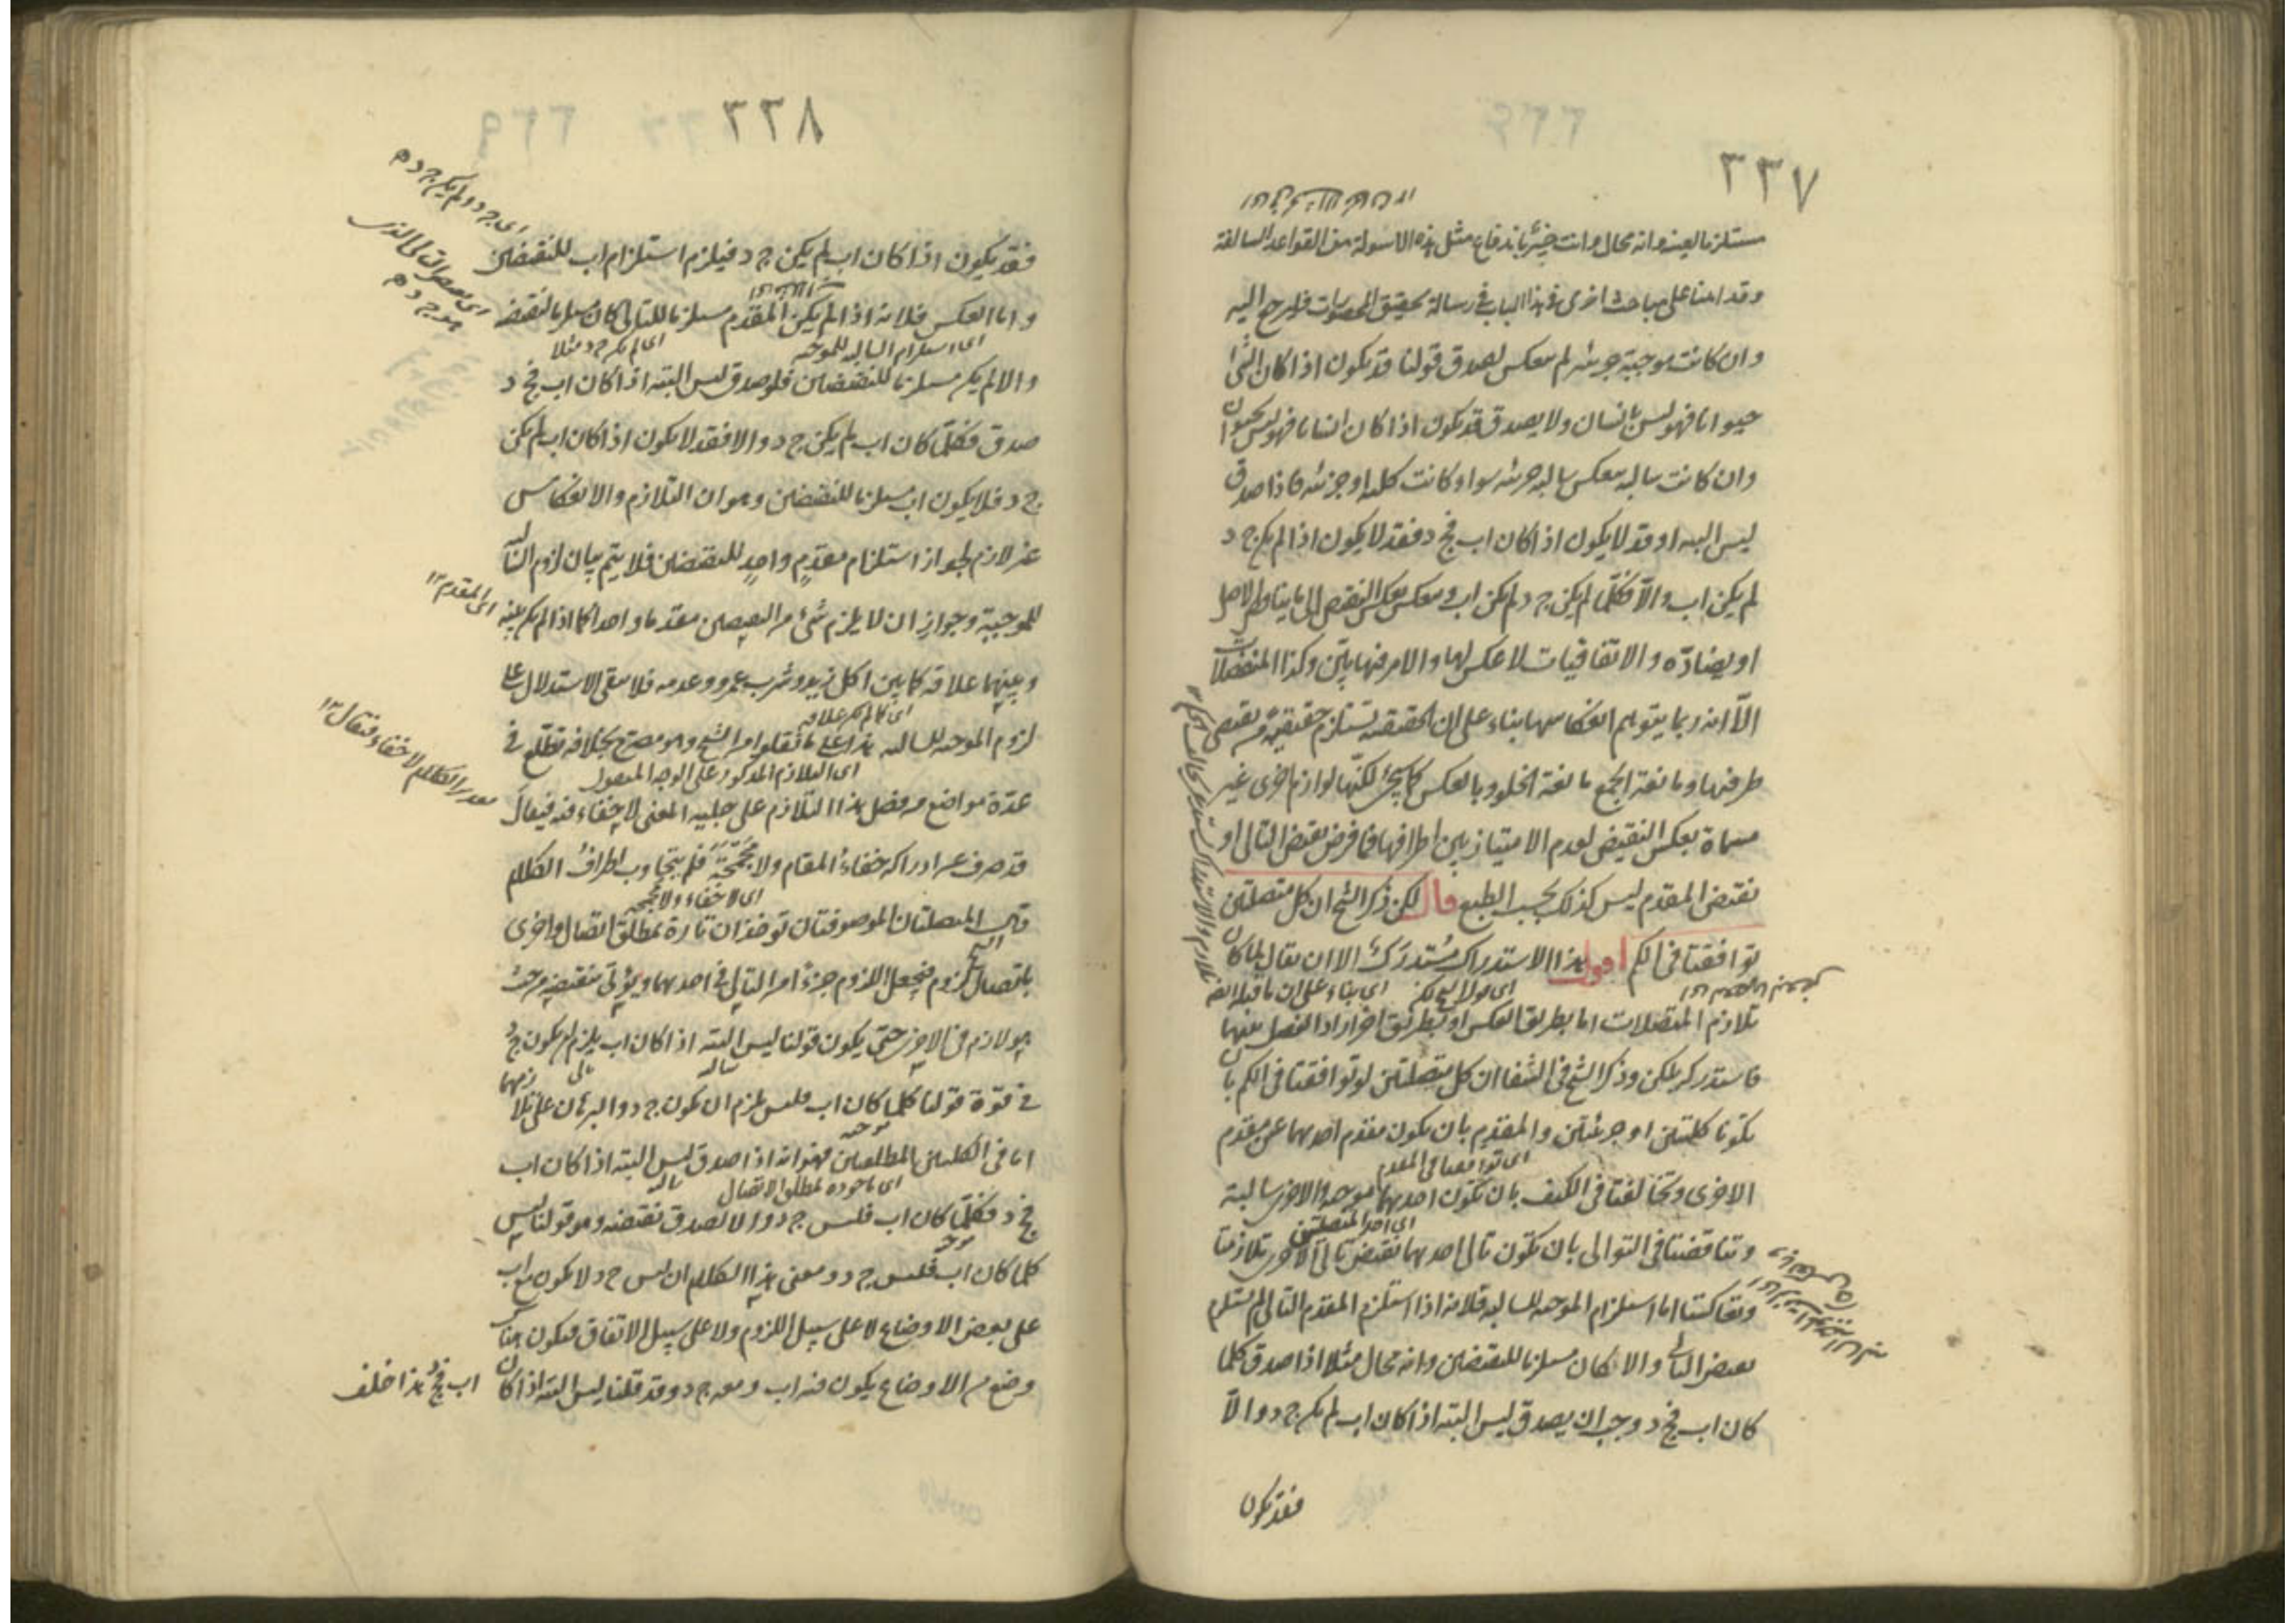 ٣٣٧
مستلزما لعينه وانه محال وانت خبير باندفاع مثل هذه الاسولة من القواعد السالفة
وقد امنا على مباحث اخرى فى هذا الباب فى رسالة تحقيق المحصورات فليرجع اليه
وان كانت موجبة جزئية لم تنعكس لصدق قولنا قد يكون اذا كان الشئ
حيوانا فهو ليس بانسان ولا يصدق قد يكون اذا كان انسانا فهو ليس بحيوان
وان كانت سالبة تنعكس سالبة جزئية سواء كانت كلية او جزئية فاذا صدق
ليس البتة او قد لا يكون اذا كان اب فج د فقد لا يكون اذا لم يكن ج د
لم يكن اب والا فكلما لم يكن ج د لم يكن اب وينعكس بعكس النقيض الى ما يناقض الاصل
او يضاده والاتفاقيات لا عكس لها والامر فيها بين وكذا المنفصلات
الا انه ربما يتوهم انعكاسها بناء على ان الحقيقية تستلزم حقيقية من نقيضى
طرفيها ومانعة الجمع مانعة الخلو وبالعكس كما سيجئ لكنها لوازم اخرى غير
مسماة بعكس النقيض لعدم الامتياز بين اطرافها فما فرض نقيض التالى او
نقيض المقدم ليس كذلك بحسب الطبع قال لكن ذكر الشيخ ان كل متصلتين
توافقتا فى الكم اقول هذا الاستدراك مستدرك الا ان يقال لما كان
اى قوله لكن اى بناء على ان ما قبله ايضا
تلازم المتصلات اما بطريق العكس او بطريق اخر اراد الفصل بينهما
فاستدرك بلكن وذكر الشيخ فى الشفا ان كل متصلتين لو توافقتا فى الكم بان
تكونا كليتين او جزئيتين والمقدم بان يكون مقدم احديهما عين مقدم
اى توافقتا فى المقدم
الاخرى وتخالفتا فى الكيف بان تكون احديهما موجبة والاخرى سالبة
اى احد المتصلتين
وتناقضتا فى التوالى بان تكون تالى احديهما نقيض تالى الاخرى تلازمتا
وتعاكستا اما استلزام الموجبة للسالبة فلانه اذا استلزم المقدم التالى لم يستلزم
نقيض التالى والا كان مستلزما للنقيضين وانه محال مثلا اذا صدق كلما
كان اب فج د وجب ان يصدق ليس البتة اذا كان اب لم يكن ج د والا
فقد يكون
٣٣٨
اى ج د ولم يكن ج د
فقد يكون اذا كان اب لم يكن ج د فيلزم استلزام اب للنقيضين
واما العكس فلانه اذا لم يكن المقدم مستلزما للتالى كان مستلزما لنقيضه
اى استلزام السالبة للموجبة
اى لم يكن ج د مثلا
والا لم يكن مستلزما للنقيضين فلو صدق ليس البتة اذا كان اب فج د
صدق فكلما كان اب لم يكن ج د والا فقد لا يكون اذا كان اب لم يكن
ج د فلا يكون اب مستلزما للنقيضين وهو ان التلازم والانعكاس
غير لازم لجواز استلزام مقدم واحد للنقيضين فلا يتم بيان لزوم السالبة
للموجبة وجواز ان لا يلزم شئ من النقيضين مقدما واحدا كما اذا لم يكن بينه
اى المقدم ١٢
وبينهما علاقة كما بين اكل زيد وشرب عمرو وعدمه فلا يبقى الاستدلال على
اى كما لم يكن علاقة
لزوم الموجبة للسالبة هذا على ما نقلوا من الشيخ وهو مصرح بخلافه تطلع فى
اى التلازم المذكور على الوجه المنقول
عدة مواضع وفصل هذا التلازم على جلية المعنى لا خفاء فيه فيقال
قد صرف عن ادراكه خفاء المقام ولا مجمجة فلم يتجاوب اطراف الكلام
اى لا خفاء ولا مجمجة
قال المتصلتان الموصوفتان توخذان تارة بمطلق اتصال واخرى
باتصال لزوم فيجعل اللزوم جزءا من التالى فى احديهما ويؤتى بنقيضه من حيث
هو لازم فى الاخرى حتى يكون قولنا ليس البتة اذا كان اب يلزم ان يكون ج د
سالبة
فى قوة قولنا كلما كان اب فليس يلزم ان يكون ج د والبرهان على تلازمهما
موجبة
اما فى الكليتين المطلقتين فهو انه اذا صدق ليس البتة اذا كان اب
اى ماخوذة بمطلق الاتصال
فج د فكلما كان اب فليس ج د والا لصدق نقيضه وهو قولنا ليس
كلما كان اب فليس ج د ومعنى هذا الكلام ان ليس ج د لا يكون مع اب
على بعض الاوضاع لا على سبيل اللزوم ولا على سبيل الاتفاق فيكون هناك
وضع من الاوضاع يكون فيه اب ومعه ج د وقد قلنا ليس البتة اذا كان
اب فج د هذا خلف